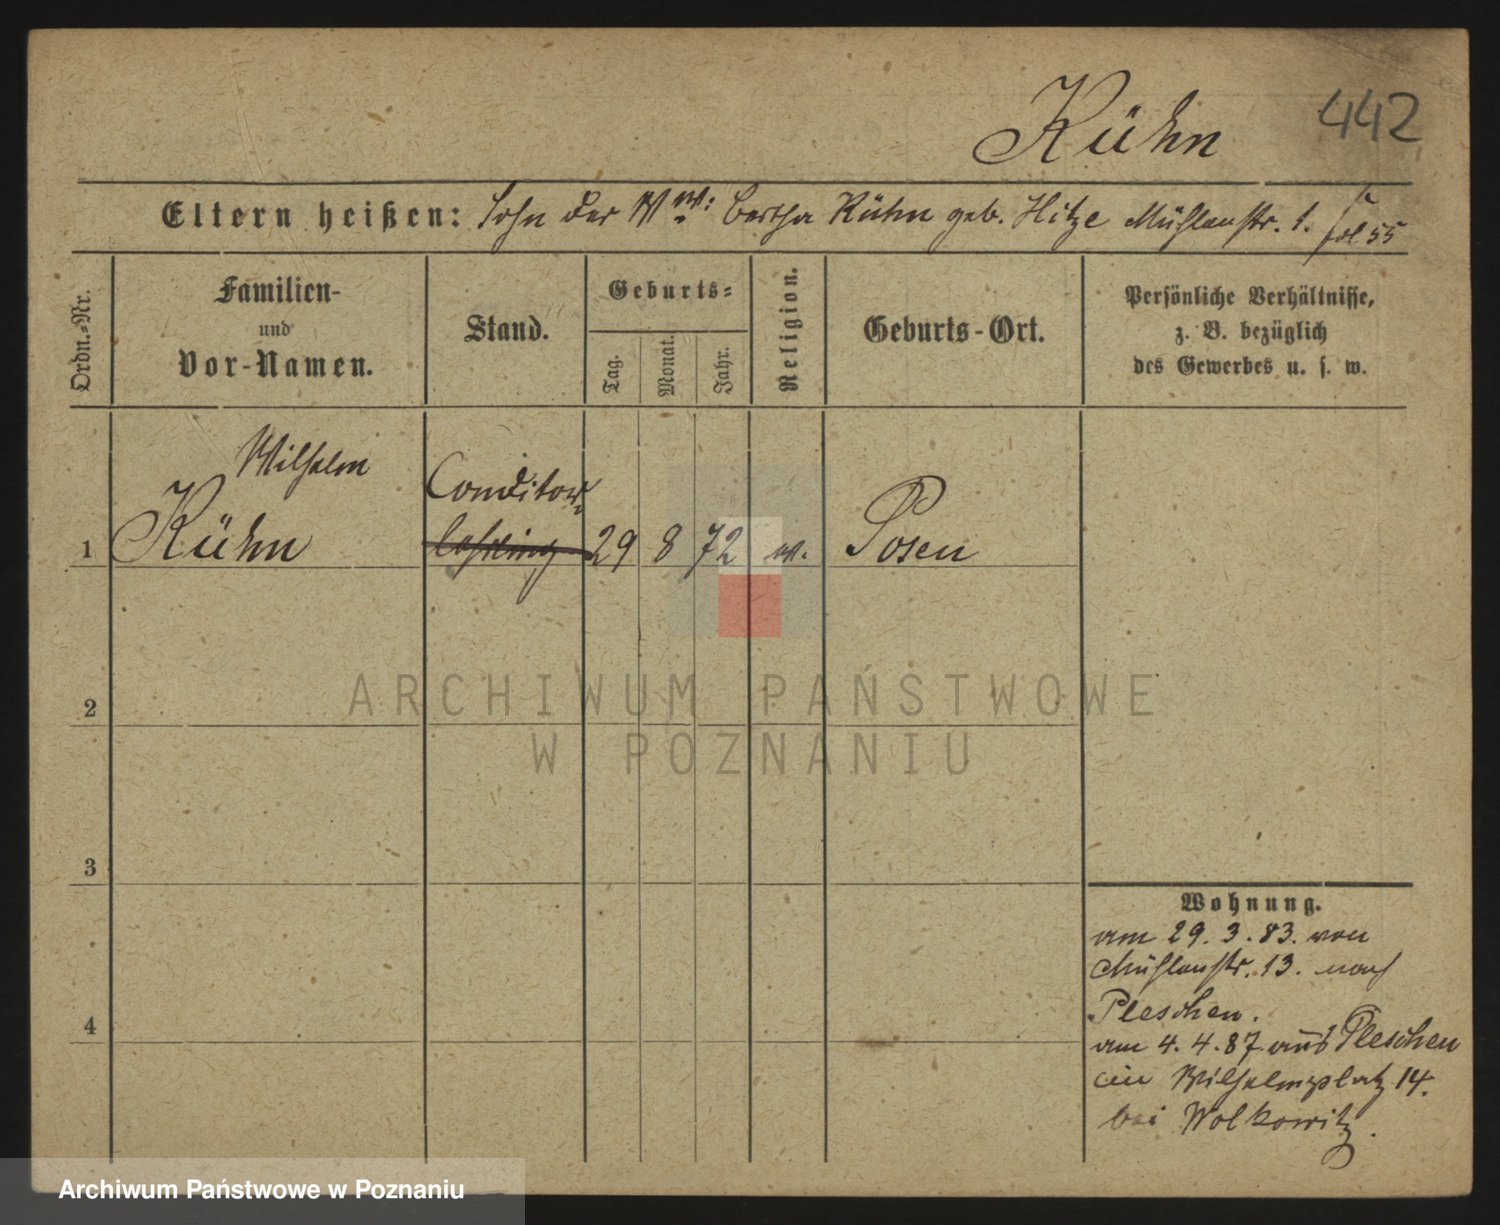 Kühn 442
Eltern heißen: Sohn der Ww: Bertha Kühn geb. Hitze Mühlenstr. 1. fol 55
Ordn.=Nr.
Familien-
und
Vor-Namen.
Stand.
Geburts=
Tag.
Monat.
Jahr.
Religion.
Geburts-Ort.
Persönliche Verhältnisse,
z. B. bezüglich
des Gewerbes u. s. w.
Wilhelm
Conditor
1 Kühn lehrling 29 8 72 Posen
2
3
4
Wohnung.
am 29. 3. 83. von
Mühlenstr. 13. nach
Pleschen.
am 4. 4. 87. aus Pleschen
Wilhelmsplatz 14.
bei Wolkowitz.
ARCHIWUM PAŃSTWOWE
W POZNANIU
Archiwum Państwowe w Poznaniu